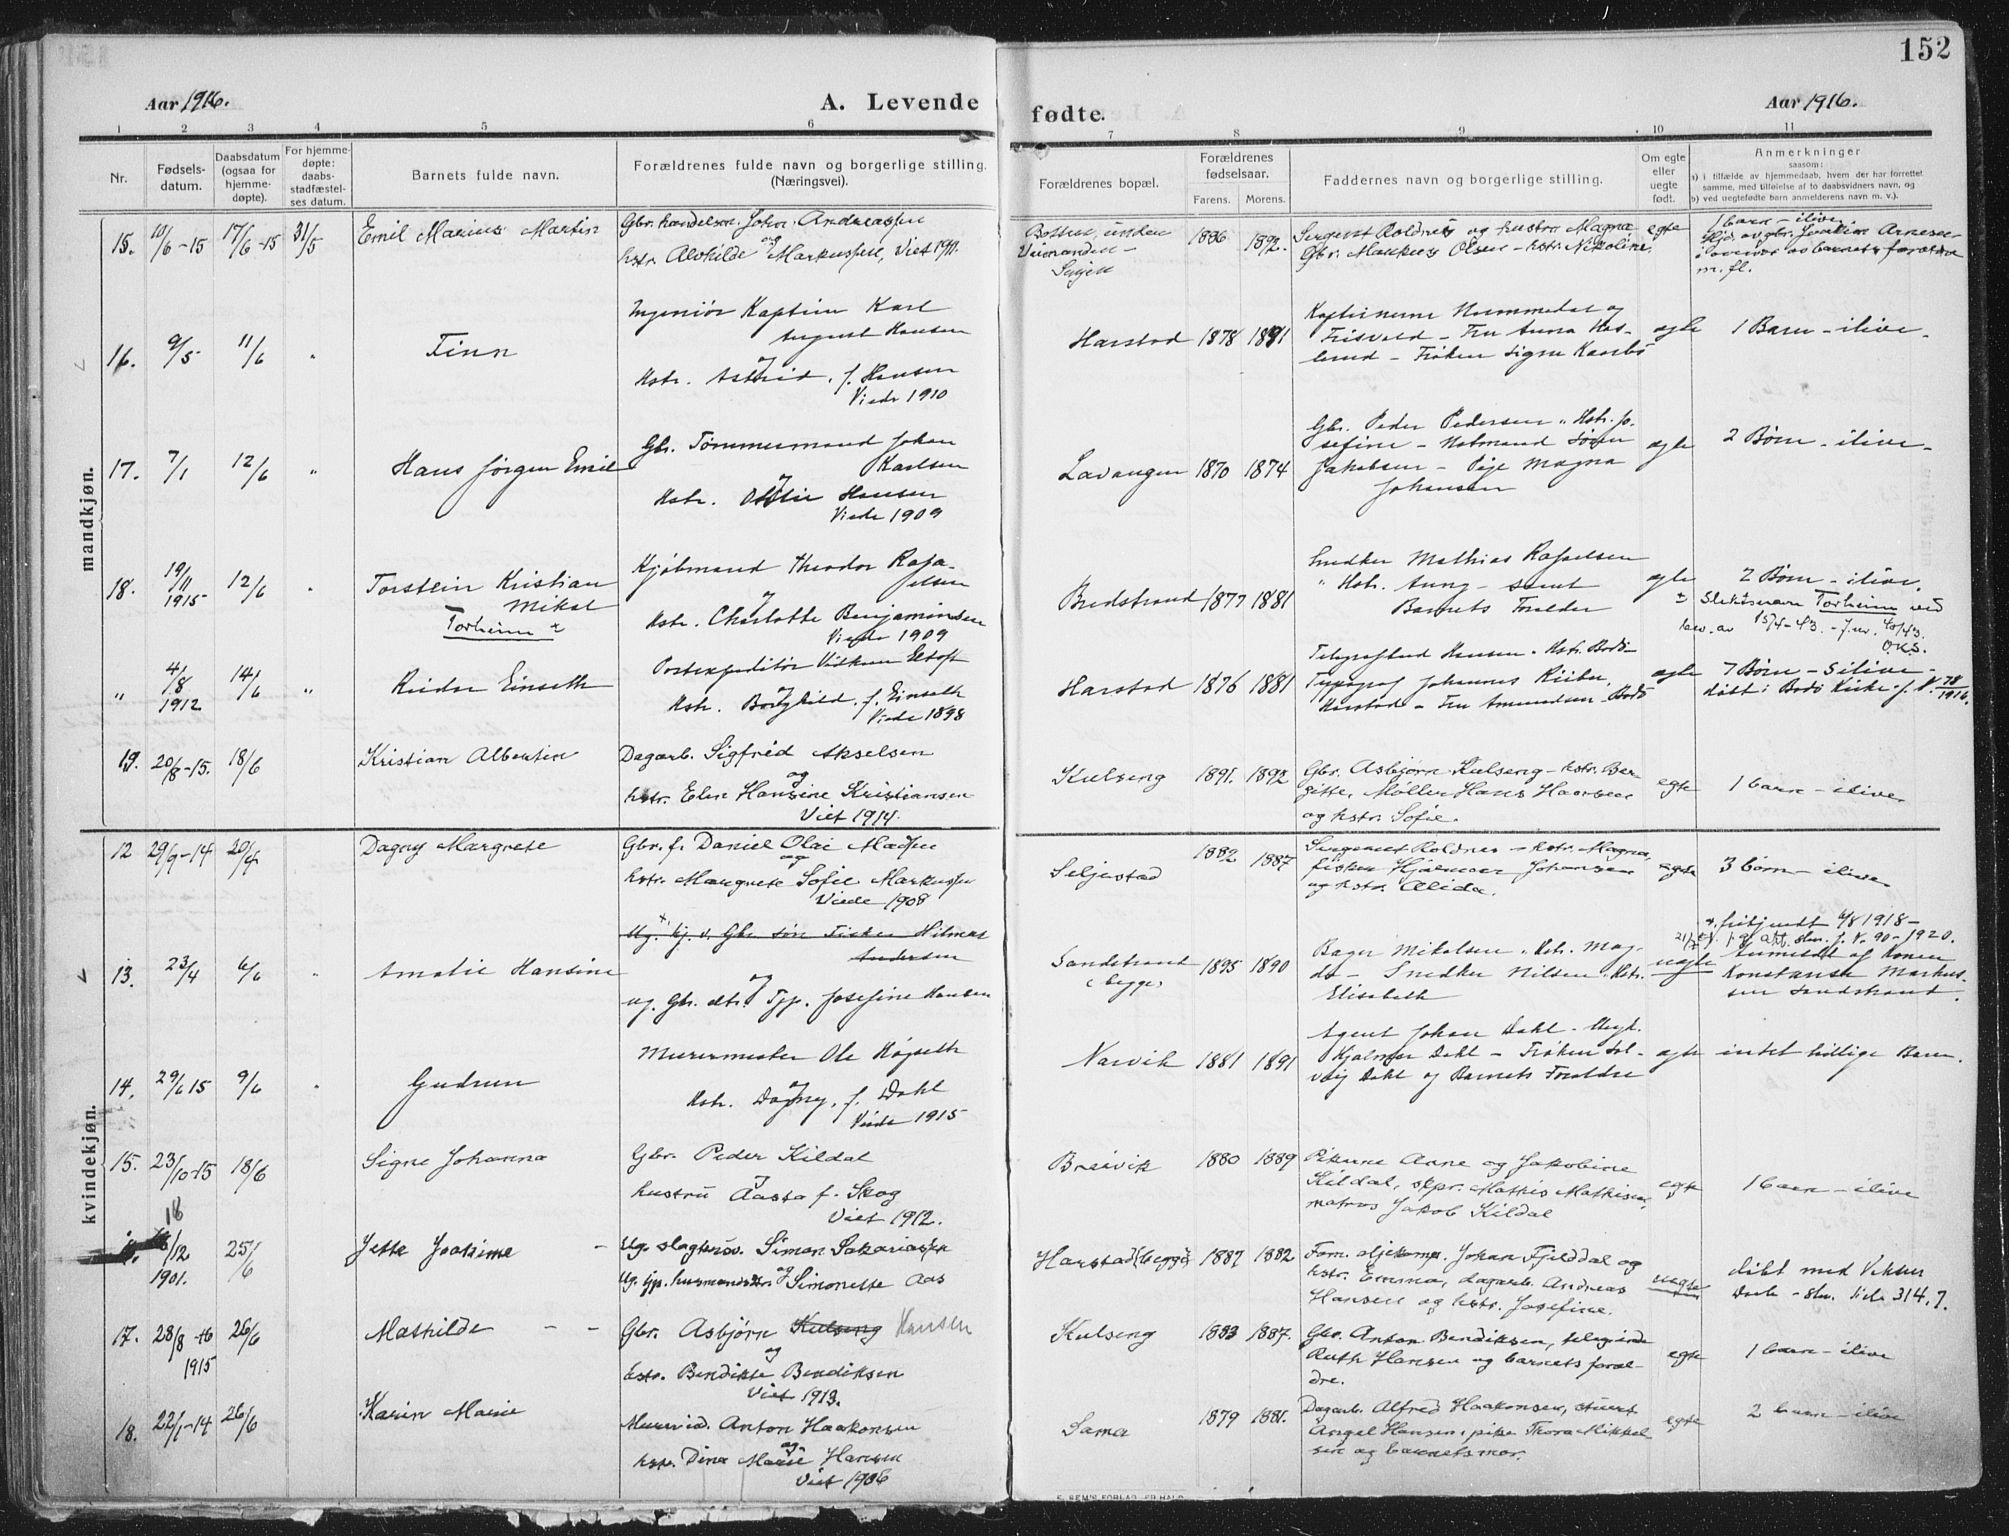 152
Aar 1916.
A. Levende
fødte.
Aar 1916.
1 2 3 4 5 6 7 8 9 10 11
Nr.
Fødsels-
datum.
Daabsdatum
(ogsaa for
hjemme-
døpte).
For hjemme-
døpte:
daabs-
stadfæstel-
ses datum.
Barnets fulde navn.
Forældrenes fulde navn og borgerlige stilling.
(Næringsvei).
Forældrenes bopæl.
Forældrenes
fødselsaar.
Farens. Morens.
Faddernes navn og borgerlige stilling.
Om egte
eller
uegte
født.
Anmerkninger
saasom:
a) i tilfælde av hjemmedaab, hvem der har forrettet
samme, med tilføielse af to daabsvidners navn, og
b) ved uegtefødte barn anmelderens navn m. v.).
mandkjøn.
15. 10/6-15 17/6-15 31/5 Emil Marius Martin
Gbr. handelsm. Johan Andreassen
og
hstr. Alvhilde Markussen, Viet 1911.
1886 1892.
Sergent Roldnes og hustru Magna,
Gbr. Markus Olsen - hstr. Nikoline.
egte
1 barn - ilive
Hjd. av gbr. Joakim Arnesen
i overvær av barnets forældre
m. fl.
16. 9/5 11/6 " Finn
Ingeniør Kaptein Karl
August Hansen
og
Hstr. Astrid, f. Hansen
Viede 1910
Harstad 1878 1891
Frisvold - Fru Anna Has-
lund - Frøken Signe
egte
1 Barn - ilive -
17. 7/1 12/6 " Hans Jørgen Emil
Gbr. Tømmermand Johan
Karlsen
og
Hstr. Hansen
Viede 1909
Lavangen 1870 1874
Gbr. Peder Pedersen " Hstr. Jo-
sefine - Søren
Jakobsen - Pige Magna
Johansen
egte
2 Børn - ilive -
18. 19/11 1915 12/6 " Torstein Kristian
Mikal
Torheim ±
Kjøbmand Theodor Rafa-
elsen
og
Hstr. Charlotte Benjaminsen
Viede 1909
Bredstrand 1877 1881
Snedker Mathias Rafaelsen
" Hstr. Aung - samt
Barnets Forældre
egte
2 Børn - ilive.
± Slektsnavn Torheim ved
bev. av 15/4-43. - J.nr. 40/43.
O.K.S.
" 4/8 1912 14/6 " Reidar Einseth
Postexpeditør Vilhelm Eltoft
og
Hstr. Borghild, f. Einseth
Viede 1898
Harstad 1876 1881
Telegrafbud Hansen - Hstr. Bodø -
Typograf Johannes
Harstad - Fru Amundsen - Bodø
egte
7 Børn - 5 ilive -
døbt i Bodø Kirke - J. N. 78/1916.
19. 20/8-15. 18/6 Kristian Albertin
Dagarb. Sigfrid Akselsen
og
hstr. Elen Hansine Kristiansen
Viet 1914.
Kulseng 1891. 1892
Gbr. Asbjørn Kulseng - hstr. Ber-
gitte, Møller Hans
og hstr. Sofie.
egte
1 barn - ilive
kvindekjøn.
12 29/9-14 20/4 Dagny Margrete
Gbr. f. Daniel Olai Madsen
og
hstr. Margrete Sofie Markussen
Viede 1908
Seljestad 1882 1887
Sergeant Roldnes - hstr. Magna,
fisker Hjalmar Johansen
og hstr. Alida.
egte
3 børn - ilive
13. 23/4 6/6 " Amalie Hansine
Ug. kj. v. Gbr. søn Fisker Hilmar
Andersen
og
ug. Gbr. dtr. Tjp. Josefine Hansen
Sandstrand
(begge)
1895 1890
Bager Mikalsen " Hstr. Mag-
da - Snedker Nilsen " Hstr.
Elisabeth
uegte
+ 6/8 1918 -
90-1920.
Anmeldt af Konen
Konstanse Markus-
sen Sandstrand.
14. 29/6 15 9/6 " Gudrun
Murermester Ole Høgseth
og
Hstr. Dagny, f. Dahl
Viede 1915
Narvik 1881 1891
Agent Johan Dahl -
Hjalmar Dahl - Frøken Sol-
veig Dahl og Barnets Forældre
egte
intet tidlige Barn.
15. 23/10-15 18/6 Signe Johanna
Gbr. Peder Kildal
og
hustru Aasta f. Skog
Viet 1912.
Breivik 1880 1889
Pikerne Anne og Jakobine
Kildal, skpr. Mathis Mathisen,
matros Jakob Kildal
egte
1 barn - ilive
18/12
1901. 25/6 Jette Joakime -
Ug. slagtersv. Simon Sakariassen
og
Ug. tjp. husmandsdtr. Simonette Aas
Harstad (begge) 1887 1882
Johan Fjelddal og
hstr. Emma, dagarb. Andreas
Hansen og hstr. Josefine.
uegte
døbt med Vikkens
Daab - skm. side 314, 7.
17. 28/8-16
1915 26/6 Mathilde - -
Gbr. Asbjørn Kulseng Hansen
og
hstr. Bendikte Bendiksen
Viet 1913.
Kulseng 1883 1887.
Gbr. Anton Bendiksen,
Ruth Hansen og barnets foræl-
dre.
egte
1 barn - ilive
18. 22/1-14 26/6 Karin Marie
Anton Haakonsen
og
hstr. Dina Marie Hansen
Viet 1906
Sama 1879 1881.
Dagarb. Alfred Haakonsen,
Angel Hansen, pike Thora Mikkel-
sen og barnets mor.
egte
2 barn - ilive